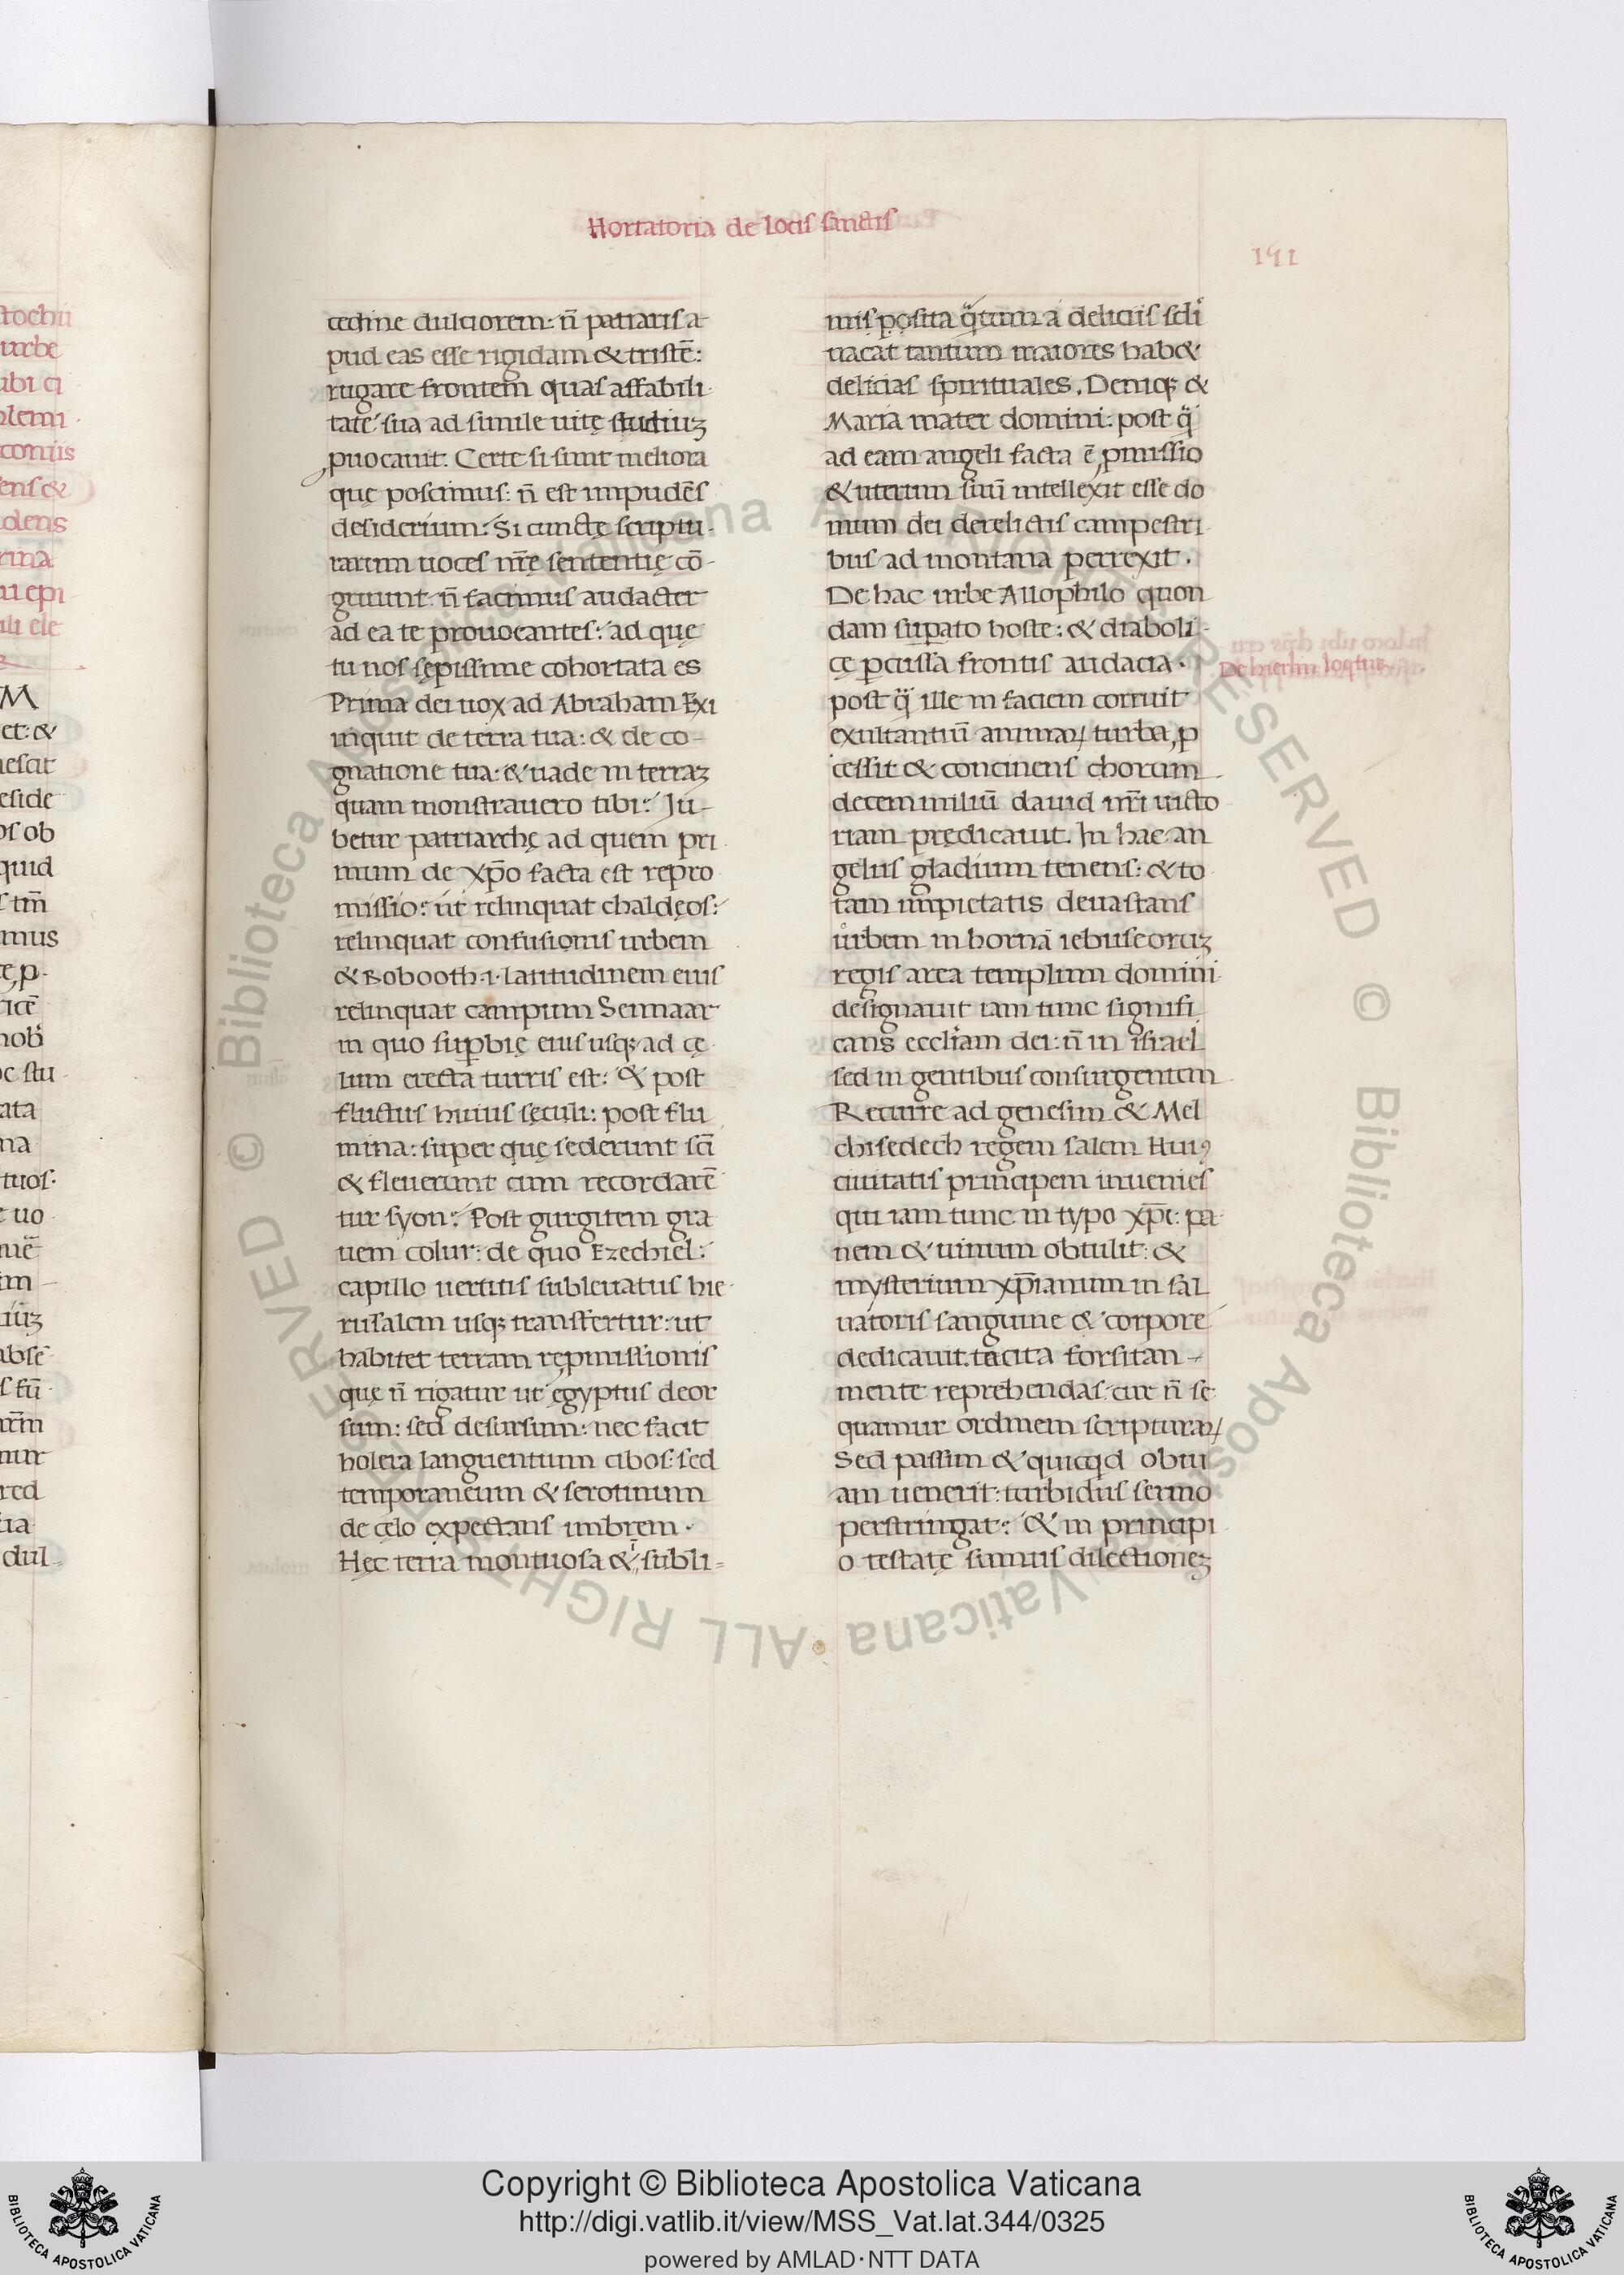 Hortatoria de locis sanctis
191
cedine dulciorem: n̄ patiaris a
pud eas esse rigidam & tristē:
rugare frontem quas affabili
tate sua ad simile uitę studiuʒ
ꝓuocauit. Certe si sunt meliora
quę poscimus: n̄ est impudēs
desiderium: Si cunctę scriptu
rarum uoces nr̄ę sententię cō-
gruunt: n̄ facimus audacter
ad ea te prouocantes: ad quę
tu nos sępissime cohortata es
Prima dei uox ad Abraham Exi
inquit de terra tua: & de co-
gnatione tua: & uade in terraʒ
quam monstrauero tibi: Iu-
betur patriarchę ad quem pri
mum de xp̄o facta est repro
missio: ut relinquat chaldęos:
relinquat confusionis urbem
& Robooth .i. latitudinem eius
relinquat campum Sennaar
in quo suꝑbię eius usqꝫ ad cę
lum erecta turris est: & post
fluctus huius sęculi: post flu
mina: super quę sederunt sc̄i
& fleuerunt cum recordarē
tur syon: Post gurgitem gra
uem cobur: de quo Ezechiel:
capillo uerticis subleuatus hie
rusalem usqꝫ transfertur: ut
habitet terram reꝓmissionis
quę n̄ rigatur ut ęgyptus deor
sum: sed desursum: nec facit
holera languentium cibos: sed
temporaneum & serotinum
de cęlo expectans imbrem.
Hęc terra montuosa & ī subli-
mis posita q̄tum a deliciis scl̄i
uacat tantum maiores hab&
delicias spirituales. Deniqꝫ &
Maria mater domini: post q̄
ad eam angeli facta ē ꝓmissio
& uterum suū intellexit esse do
mum dei derelictis campestri
bus ad montana perrexit.
De hac urbe Allophilo quon
dam suꝑato hoste: & diaboli
cę ꝑcussa frontis audacia.
post q̄ ille in faciem corruit
exultantiū animaꝝ turba ꝓ
cessit & concinens chorum
decem miliū dauid nr̄i uicto
riam prędicauit. In hac an
gelus gladium tenens: & to
tam impietatis deuastans
urbem in hornā iebuseoruʒ
regis area templum domini
designauit iam tunc signifi
cans eccl̄iam dei: n̄ in israel
sed in gentibus consurgentem
Recurre ad genesim & Mel
chisedech regem salem Huiꝰ
ciuitatis principem inuenies
qui iam tunc in typo xp̄i: pa
nem & uinum obtulit: &
mysterium xp̄ianum in sal
uatoris sanguine & corpore
dedicauit. tacita forsitan-
mente reprehendas: cur n̄ se
quamur ordinem scripturaꝝ
Sed passim & quicq̄d obui
am uenerit: turbidus sermo
perstringat: & in principi
o testatę sumus dilectioneʒ
De hierl̄m loq̄tur
Copyright © Biblioteca Apostolica Vaticana
http://digi.vatlib.it/view/MSS_Vat.lat.344/0325
powered by AMLAD·NTT DATA